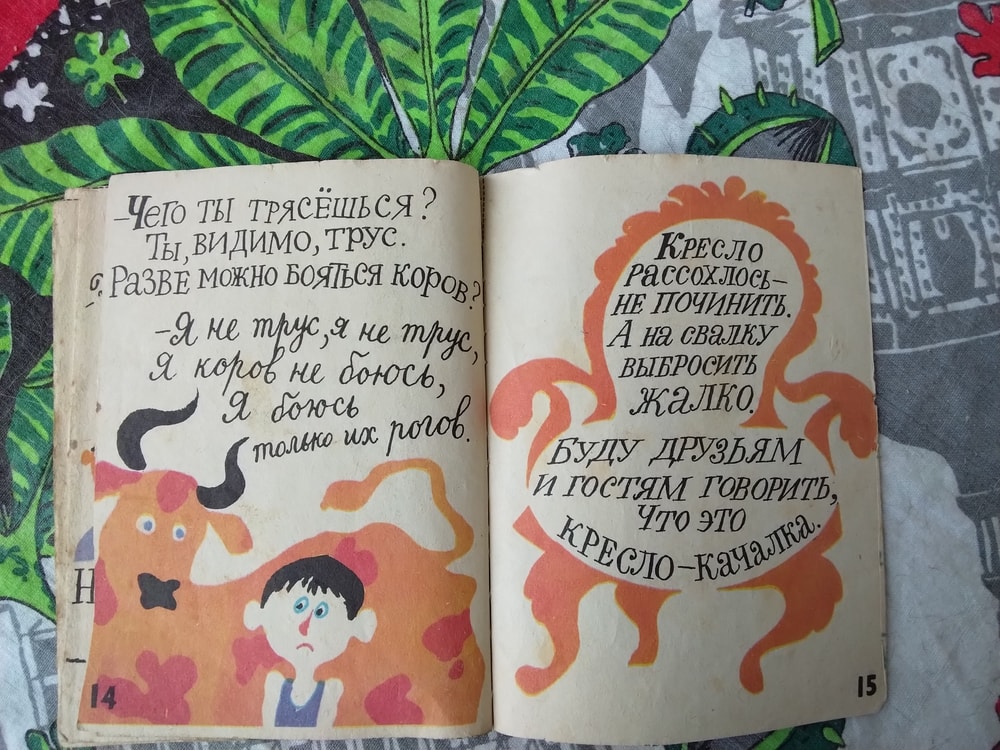 –Чего ты трясёшься?
Ты, видимо, трус.
Разве можно бояться коров?
–Я не трус, я не трус,
Я коров не боюсь,
Я боюсь
только их рогов.
Н
14
Кресло
рассохлось–
не починить.
А на свалку
выбросить
жалко.
Буду друзьям
и гостям говорить,
Что это
кресло–качалка.
15